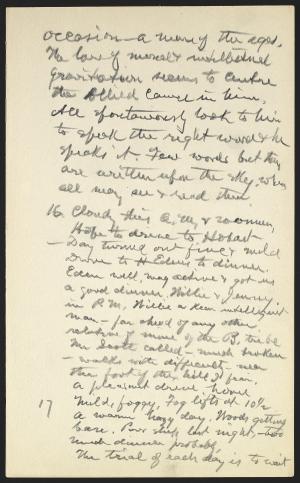 occasion — a man of the ages.
The law of moral & intellectual
gravitation seems to centre
the Allied cause in him.
All spontaneously look to him
to speak the right word & he
speaks it. Few words but they
are written upon the sky, where
all may see & read them.
16 Cloudy this A.M. & warmer,
Hope to drive to Hobart
— Day turned out fine & mild
Drove to H Eden's to dinner.
Eden well, may active & got us
a good dinner, Willie & Jenny
in P.M. Willie a keen intelligent
man — far ahead of any other
relative of mine of the B. tribe
Mr Scott called — much broken
— walks with difficulty — near
the foot of the hill I fear.
A pleasant drive home
17 Mild, foggy, Fog lifts at 10½
A warm hazy day. Woods getting
bare. Poor sleep last night, — too
much dinner probably,
The trial of each day is to wait